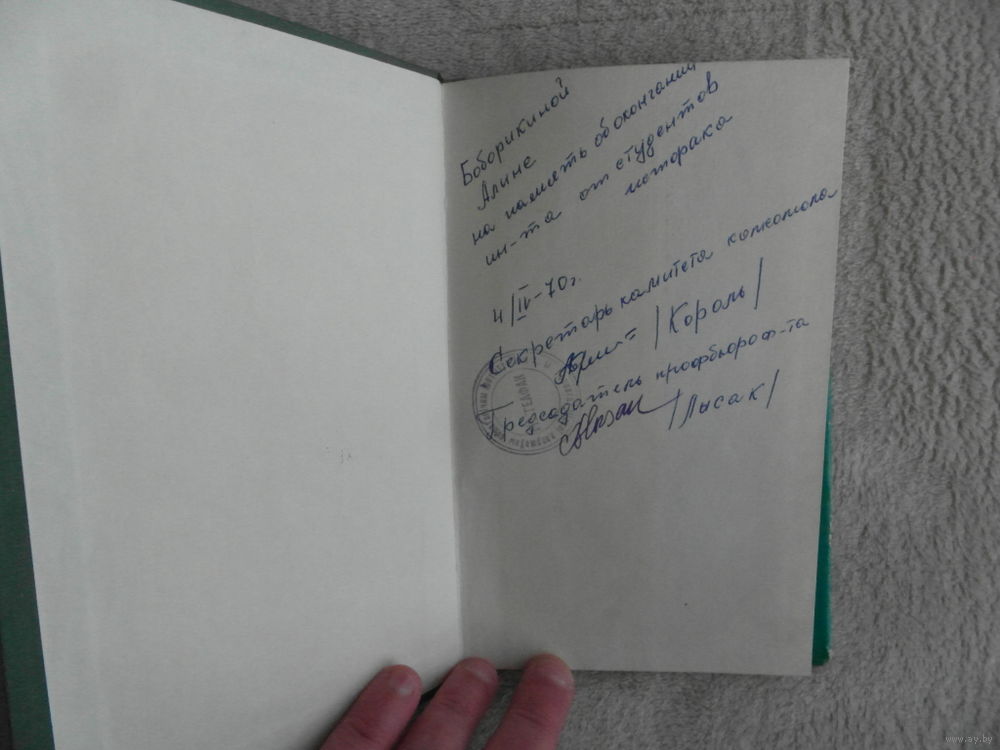 Боборикиной
Алине
на память об окончании
ин-та от студентов
истфака
4/IV-70г.
Секретарь комитета комсомола
/Король/
Председатель профбюро ф-та
/Лысак/
www.ay.by